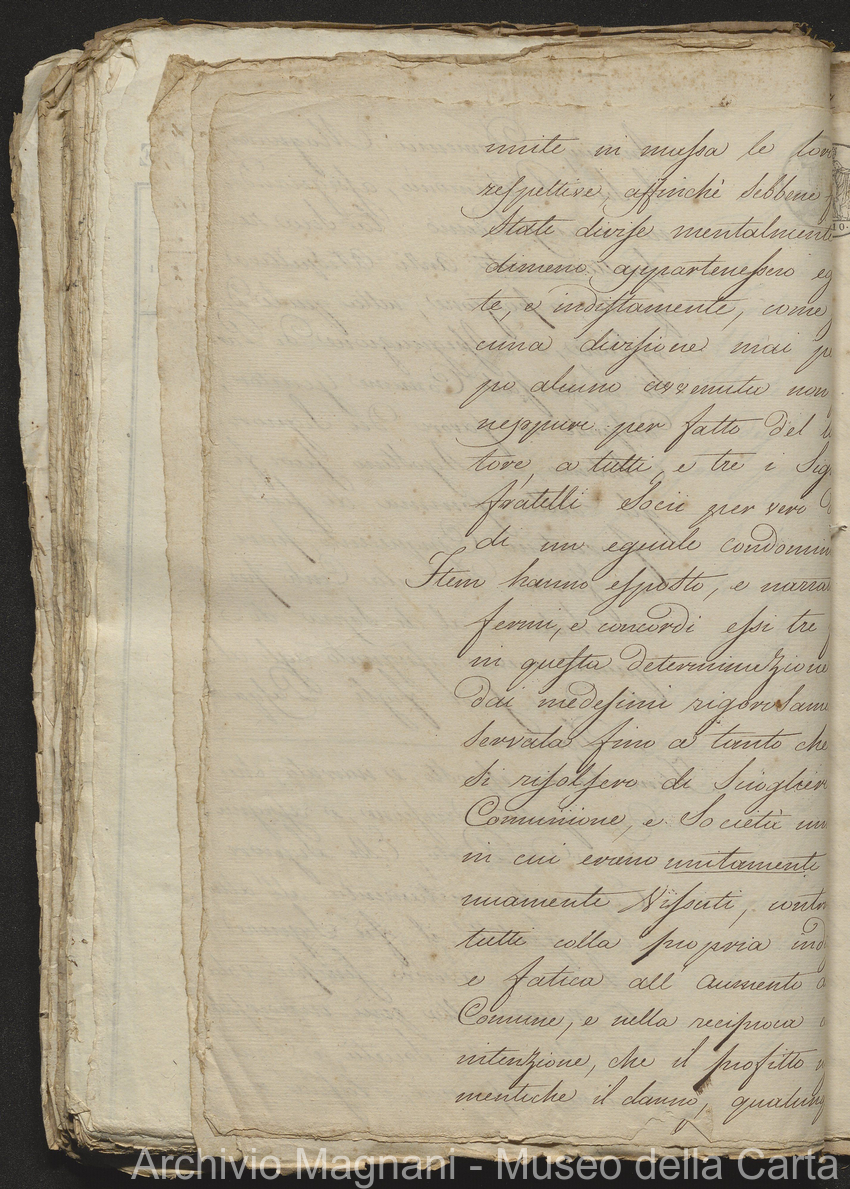 unite in massa le loro
respettive, affinchè sebbene
State divise mentalmente
dimeno appartenessero eg
te, e indistamente, come
cuna divisione mai
po alcuno avvenuta non
neppure per fatto del
tore, a tutti, e tre i Sig
fratelli Socii per vero
di un eguale condomin
Item hanno esposto, e narra
fermi, e concordi essi tre
in questa determinazione
dai medesimi rigorosame
servata fino a tanto che
Si risolsero di Sciogliere
Comunione, e Società
in cui erano unitamente
nuamente Vissuti, contr
tutti colla propria ind
e fatica all aumento
Comune, e nella reciproca
intenzione, che il profitto
mentiche il danno, qualung
10.
Archivio Magnani - Museo della Carta